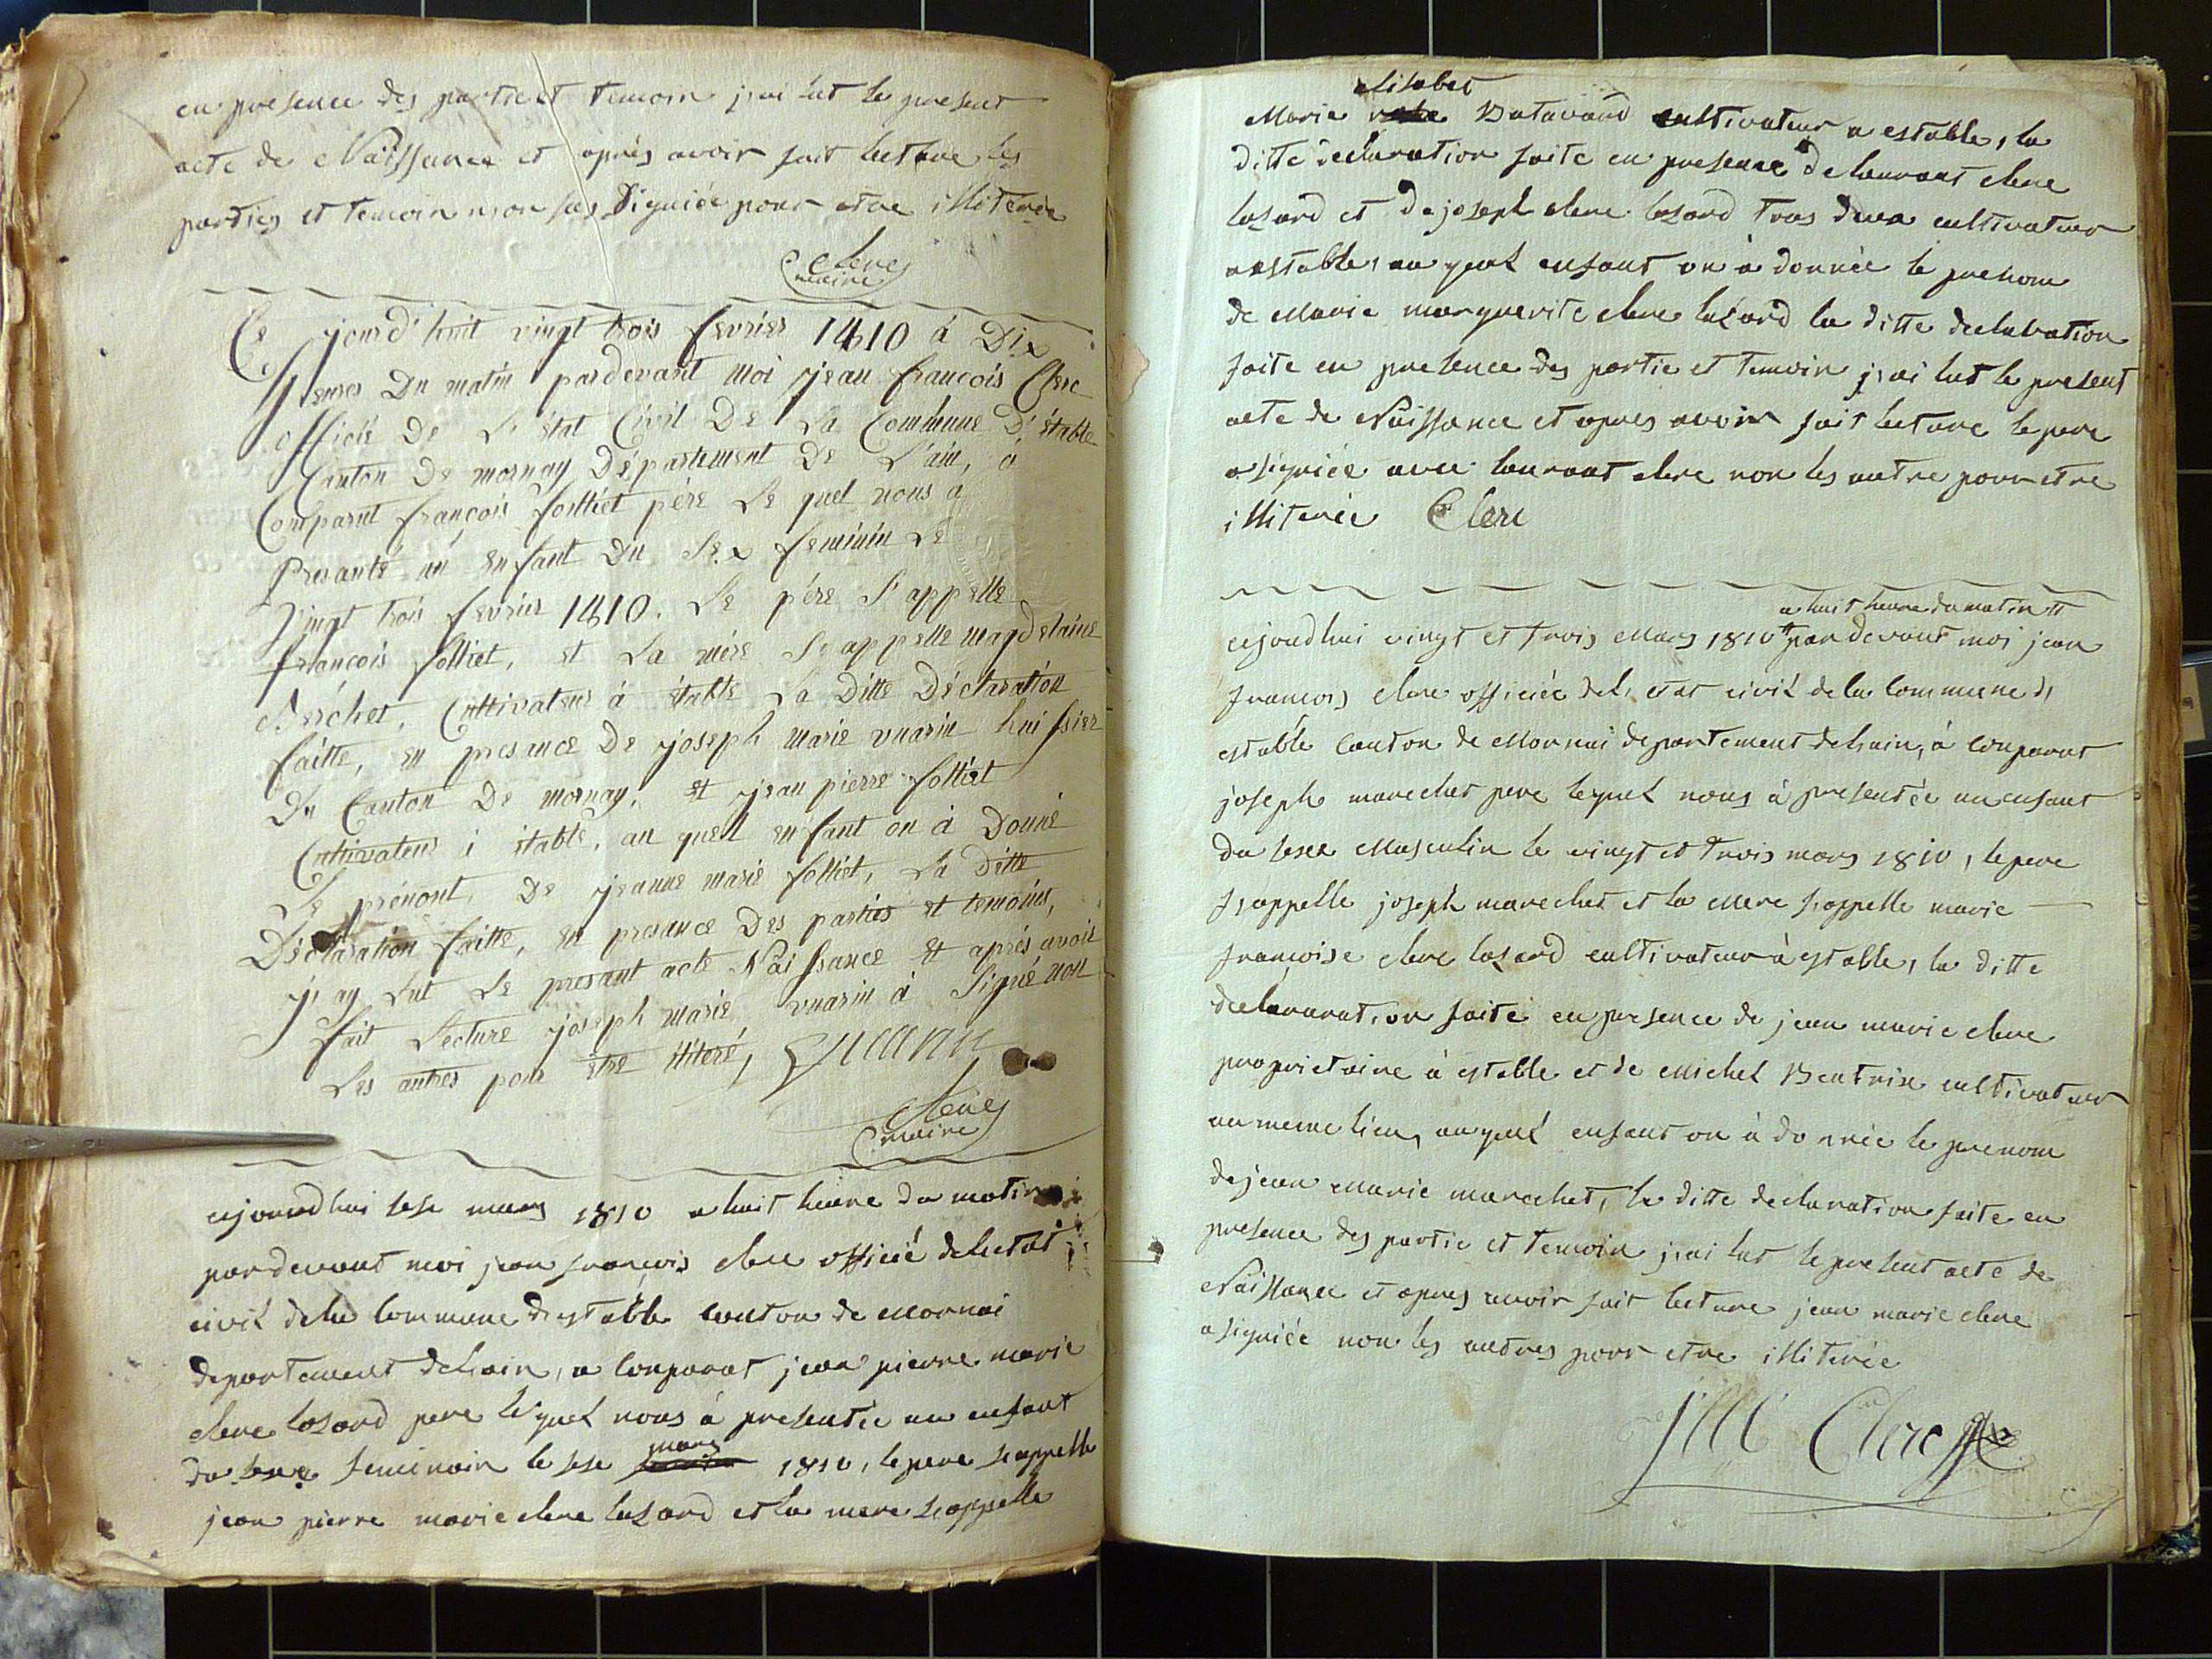 en presence des partie et temoin j'ai lut le present
acte de Naissance et après avoir fait lecture les
parties et temoin non sas Signiée pour etre illiterée
Clerc
maire
Ce jourd'huit vingt trois fevrier 1810 à Dix
Heures Du matin pardevant Moi jean françois Clerc
officié De L'état Civil De La Commune D'étable
Canton De mornay Département De L'ain, a
Comparut françois folliet pére Le quel nous a
Presanté un enfant Du Sex feminin Le
Vingt trois fevrier 1810. Le pére S'appelle
françois folliet, et La mére S'appelle magdelaine
Berchet, Cultivateur à étable La Ditte Déclaration
faitte, en presance De joseph marie vuarin huissier
Du Canton De mornay, et jean pierre folliet
Cultivateur à étable, au quell enfant on à Donné
Le prénont, De jeanne marie folliet, La Ditte
Déclaration faitte, en presance Des parties et temoins,
j'ay Lut Le presant acte Naissance et aprés avoir
fait Lecture joseph marie vuarin à Signé non
Les autres pour être illiteré, Vuarin
Clerc
maire
cejourdhui sese mars 1810 a huit heure du matin
pardevant moi jean françois clerc officié deletat
civil dela Commune destable Canton de Mornai
departement delain, a Comparut jean pierre marie
clerc lasard pere lequel nous à presentée un enfant
du sexe feminain le sese mars 1810, le pere s'appelle
jean pierre marie clerc lasard et la mere s'appelle
elisabet
Marie Batavard cultivateur a estable, la
ditte declaration faite en presence de laurant clerc
lasard et de joseph clerc lasard tous deux cultivateur
a estable, au quel enfant on à donnée le prenom
de Marie marguerite clerc lasard la ditte declaration
faite en presence des partie et temoin j'ai lut le present
acte de Naissance et apres avoir fait lecture le pere
a signiée avec laurant clerc non les autre pour etre
illiterée Clerc
a huit heure du matin
cejourdhui vingt et trois Mars 1810 par devant moi jean
francois clerc officiée del'etat civil de la Commune d'
estable Canton de Mornai departement delain, à Comparut
joseph marechet pere lequel nous à presentée un enfant
du sexe Masculin le vingt et trois mars 1810, le pere
s'appelle joseph marechet et la Mere s'appelle marie
françoise clerc lasard cultivateur à estable, la ditte
declararation faite en presence de jean marie clerc
proprietaire à estable et de Michel Beatrix cultivateur
au meme lieu, au quel enfant on à donnée le prenom
de jean Marie marechet, la ditte declaration faite en
presence des partie et temoin j'ai lut le present acte de
Naissance et apres avoir fait lecture jean marie clerc
a signiée non les autres pour etre illiterée
JM Clerc